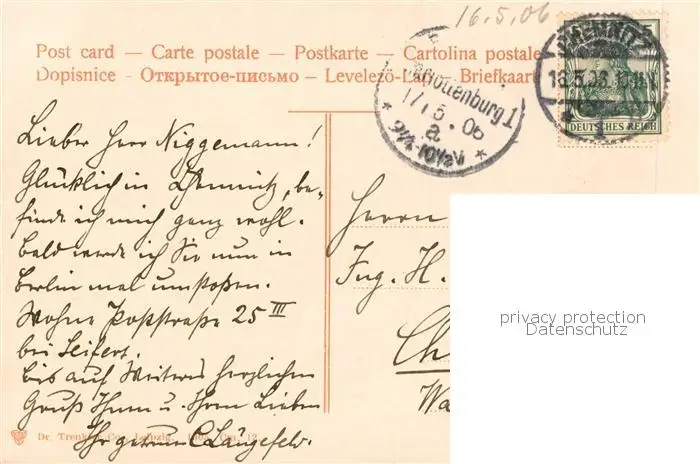 16.5.06
Post card – Carte postale – Postkarte – Cartolina postale
Dopisnice – Открытое-письмо – Levelező-Lap – Briefkaart
CHEMNITZ
16.5.06.10-11
DEUTSCHES REICH
Charlottenburg 1
17.5.06
a
9¼-10½V
Lieber Herr Niggemann!
Glücklich in Chemnitz, be-
finde ich mich ganz wohl.
Bald werde ich Sie nun in
Berlin mal umstoßen.
Wohne Poststraße 25 III
bei Seifert.
Bis auf Weiteres herzlichen
Gruß Ihnen u. Ihren Lieben
Ihr C. Längefeld.
Herrn
Ing. H.
Ch
Wa
Dr. Trenkler Co., Leipzig. 1906.
privacy protection
Datenschutz